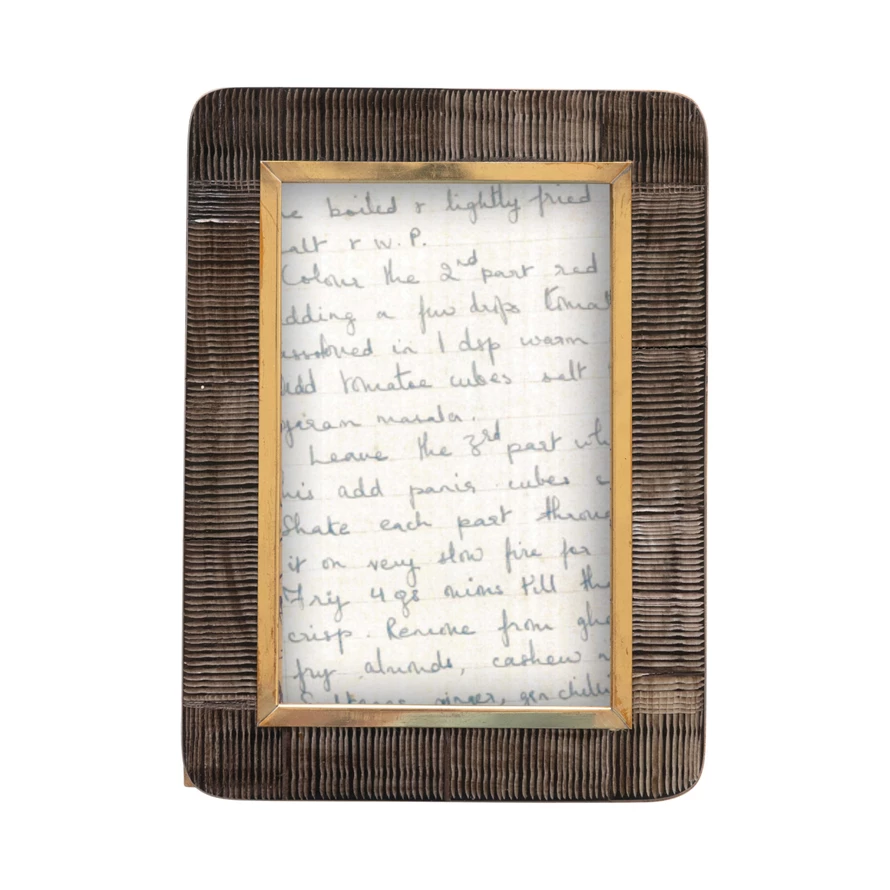 boiled & lightly fried
alt & W.P.
Colour the 2nd part red
dding a few drops tomat
in 1 dsp warm
add tomatoe cubes salt
garam masala.
Leave the 3rd part wh
his add panir cubes
Shake each part throu
it on very slow fire for
Fry 4 gs onions till the
crisp. Remove from ghe
fry almonds, cashew n
ginger, gr chilli